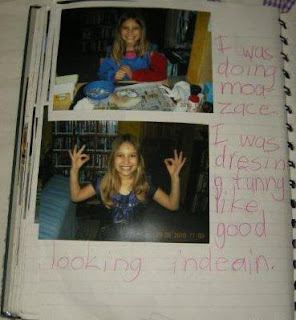 I was
doing
moa
zace.
I was
dresin
g, funny
like
good
looking indeain.